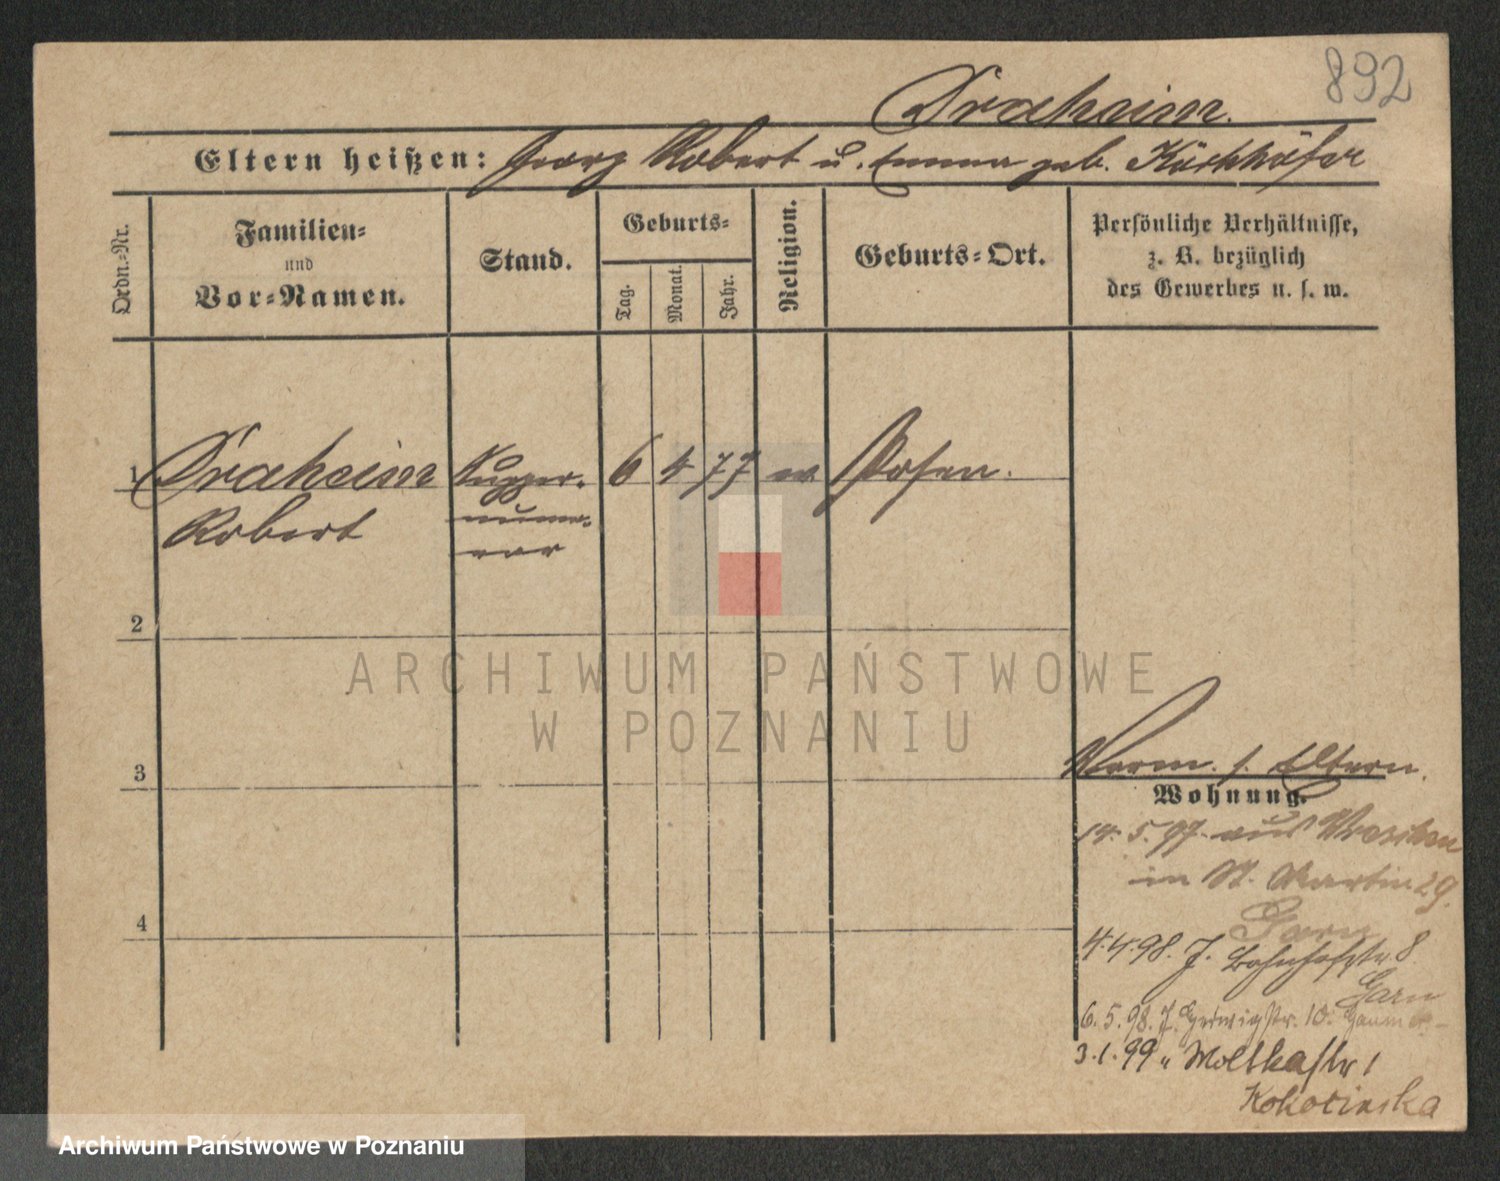 892
Draheim.
Eltern heißen: Georg Robert u. Emma geb. Kirchhöfer
Ordn.-Nr.
Familien-
und
Vor-Namen.
Stand.
Geburts-
Tag.
Monat.
Jahr.
Religion.
Geburts-Ort.
Persönliche Verhältnisse,
z. B. bezüglich
des Gewerbes u. s. w.
1 Draheim Supper- 6 4 77 ev Posen.
Robert nume-
rar
2
ARCHIWUM PAŃSTWOWE
W POZNANIU
3
Verm. s. Eltern.
Wohnung.
14.5.97. aus Wreschen
in St. Martin 29.
Garn
4
4.4.98. J. Bahnhofstr. 8.
Garn
6.5.98. J. Hedwigstr. 10.
3.1.99 " Moltkestr 1
Kokocinska
Archiwum Państwowe w Poznaniu